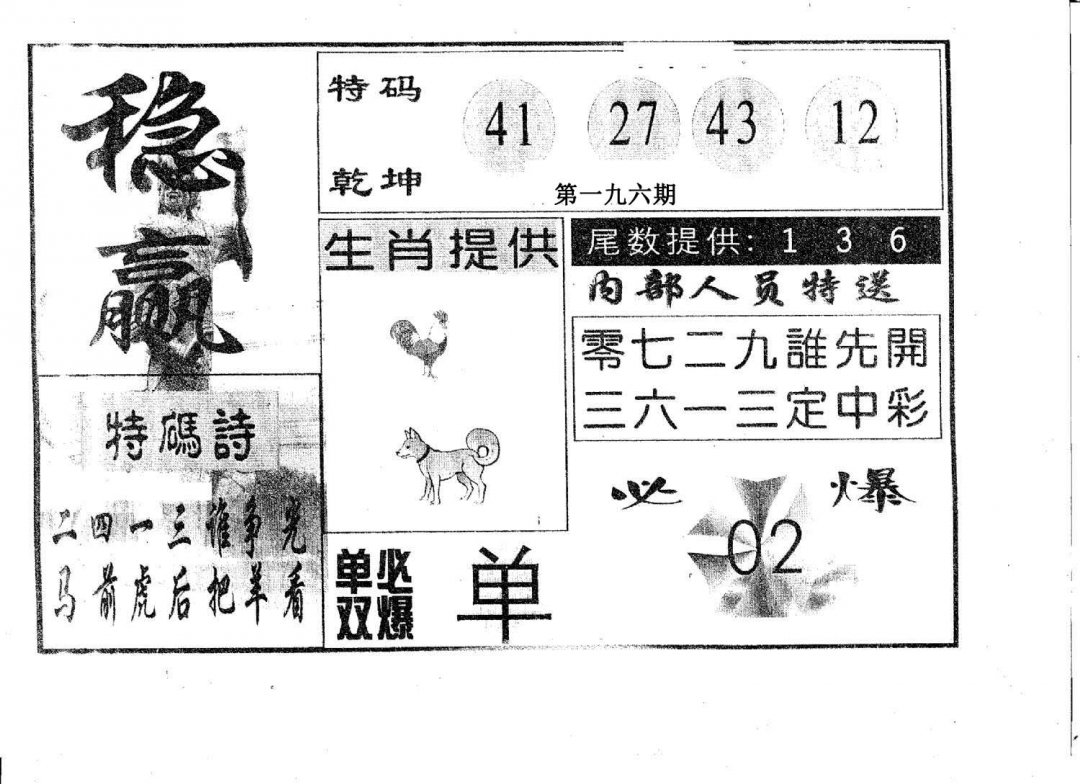 稳
赢
特码
乾坤
41 27 43 12
第一九六期
生肖提供
尾数提供：1 3 6
内部人员特送
零七二九誰先開
三六一三定中彩
特碼詩
二四一三谁争光
马前虎后把羊看
必爆
02
单双
必爆
单